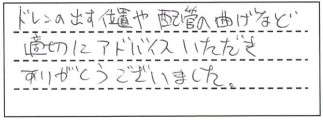 ドレンの出す位置や配管の曲げなど
適切にアドバイスいただき
ありがとうございました。